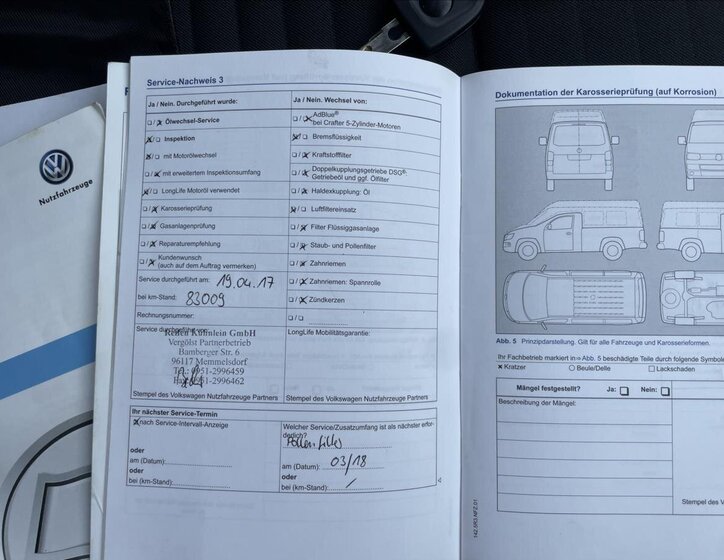 Nutzfahrzeuge
Service-Nachweis 3
Ja / Nein. Durchgeführt wurde:
Ölwechsel-Service
Inspektion
mit Motorölwechsel
mit erweitertem Inspektionsumfang
LongLife Motoröl verwendet
Karosserieprüfung
Gasanlagenprüfung
Reparaturempfehlung
Kundenwunsch
(auch auf dem Auftrag vermerken)
Service durchgeführt am: 19.04.17
bei km-Stand: 83009
Rechnungsnummer:
Service durchgeführt von:
Reifen Köhnlein GmbH
Vergölst Partnerbetrieb
Bamberger Str. 6
96117 Memmelsdorf
Tel.: 0951-2996459
Fax: 0951-2996462
Stempel des Volkswagen Nutzfahrzeuge Partners
Ja / Nein. Wechsel von:
AdBlue®
bei Crafter 5-Zylinder-Motoren
Bremsflüssigkeit
Kraftstofffilter
Doppelkupplungsgetriebe DSG®:
Getriebeöl und ggf. Ölfilter
Haldexkupplung: Öl
Luftfiltereinsatz
Filter Flüssiggasanlage
Staub- und Pollenfilter
Zahnriemen
Zahnriemen: Spannrolle
Zündkerzen
LongLife Mobilitätsgarantie:
Stempel des Volkswagen Nutzfahrzeuge Partners
Ihr nächster Service-Termin
nach Service-Intervall-Anzeige
oder
am (Datum):
oder
bei (km-Stand):
Welcher Service/Zusatzumfang ist als nächster erfor-
derlich?
Pollenfilter
am (Datum): 03/18
oder
bei (km-Stand): /
142.5R3.NFZ.01
Dokumentation der Karosserieprüfung (auf Korrosion)
Abb. 5 Prinzipdarstellung. Gilt für alle Fahrzeuge und Karosserieformen.
Ihr Fachbetrieb markiert in ⇒ Abb. 5 beschädigte Teile durch folgende Symbole
Kratzer
Beule/Delle
Lackschaden
Mängel festgestellt? Ja: Nein:
Beschreibung der Mängel:
Stempel des